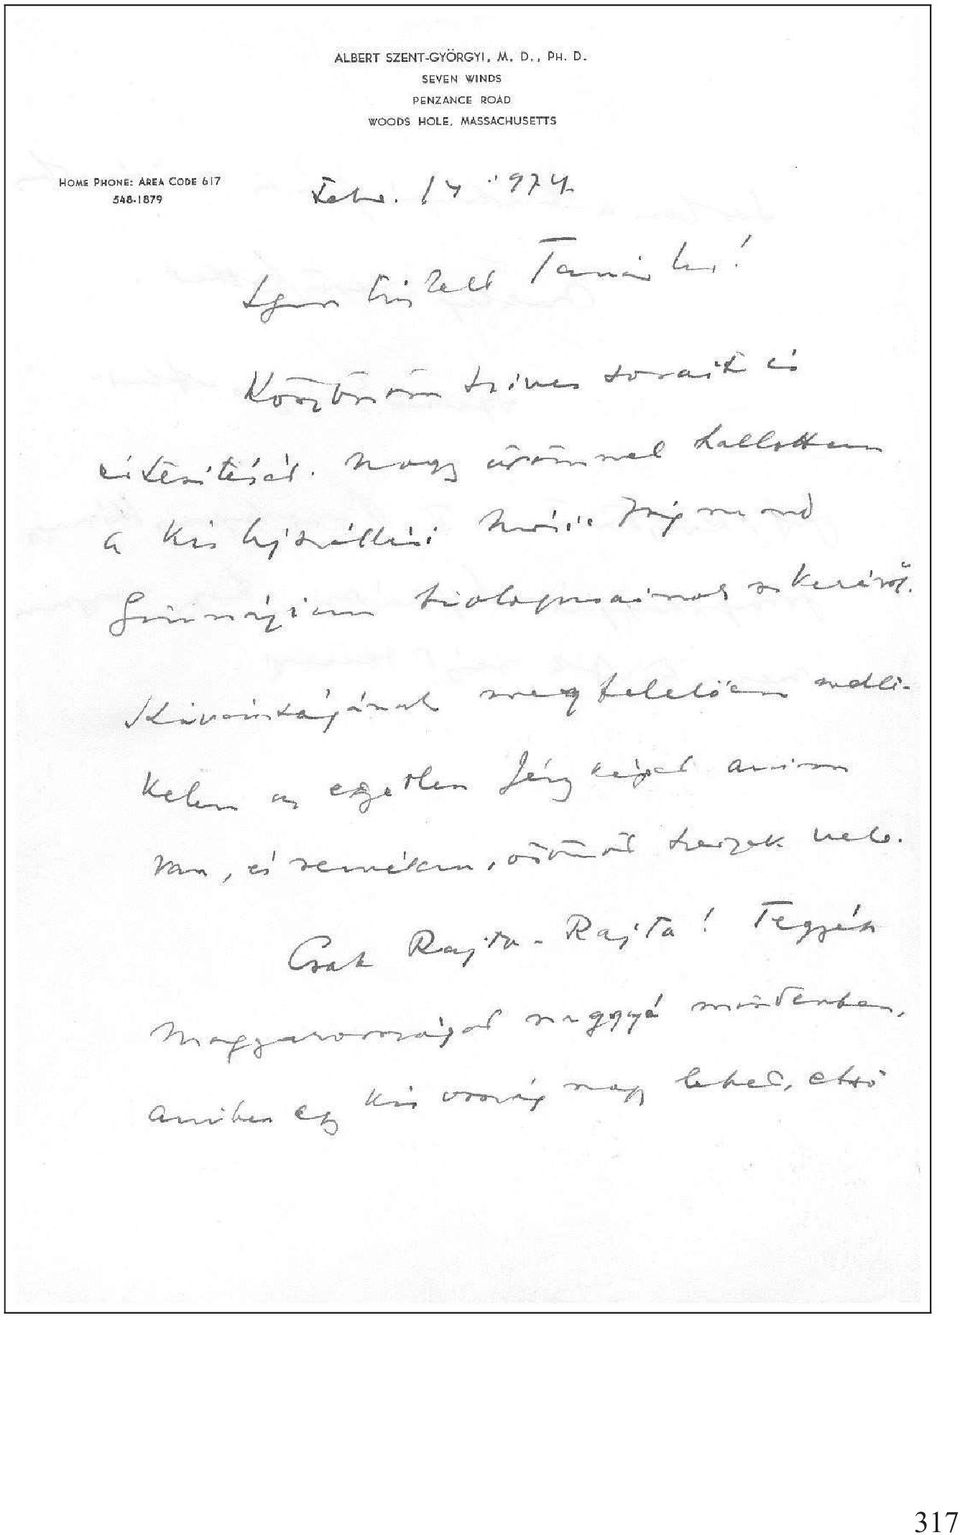 ALBERT SZENT-GYÖRGYI, M. D., PH. D.
SEVEN WINDS
PENZANCE ROAD
WOODS HOLE, MASSACHUSETTS
HOME PHONE: AREA CODE 617
548-1879
Febr. 14 1974
Igen tisztelt Tanár úr!
Köszönöm szives sorait és
értesitését. Nagy örömmel hallottam
a Kisújszállási Móricz Zsigmond
Gimnázium biologusainak a köréről.
Kivánságának megfelelően mellé-
kelem az egyetlen fényképet amim
van, és remélem, örömöt szerzek vele.
Csak Rajta-Rajta! Tegyék
Magyarországot naggyá mindenben,
amiben egy kis ország nagy lehet, első
317